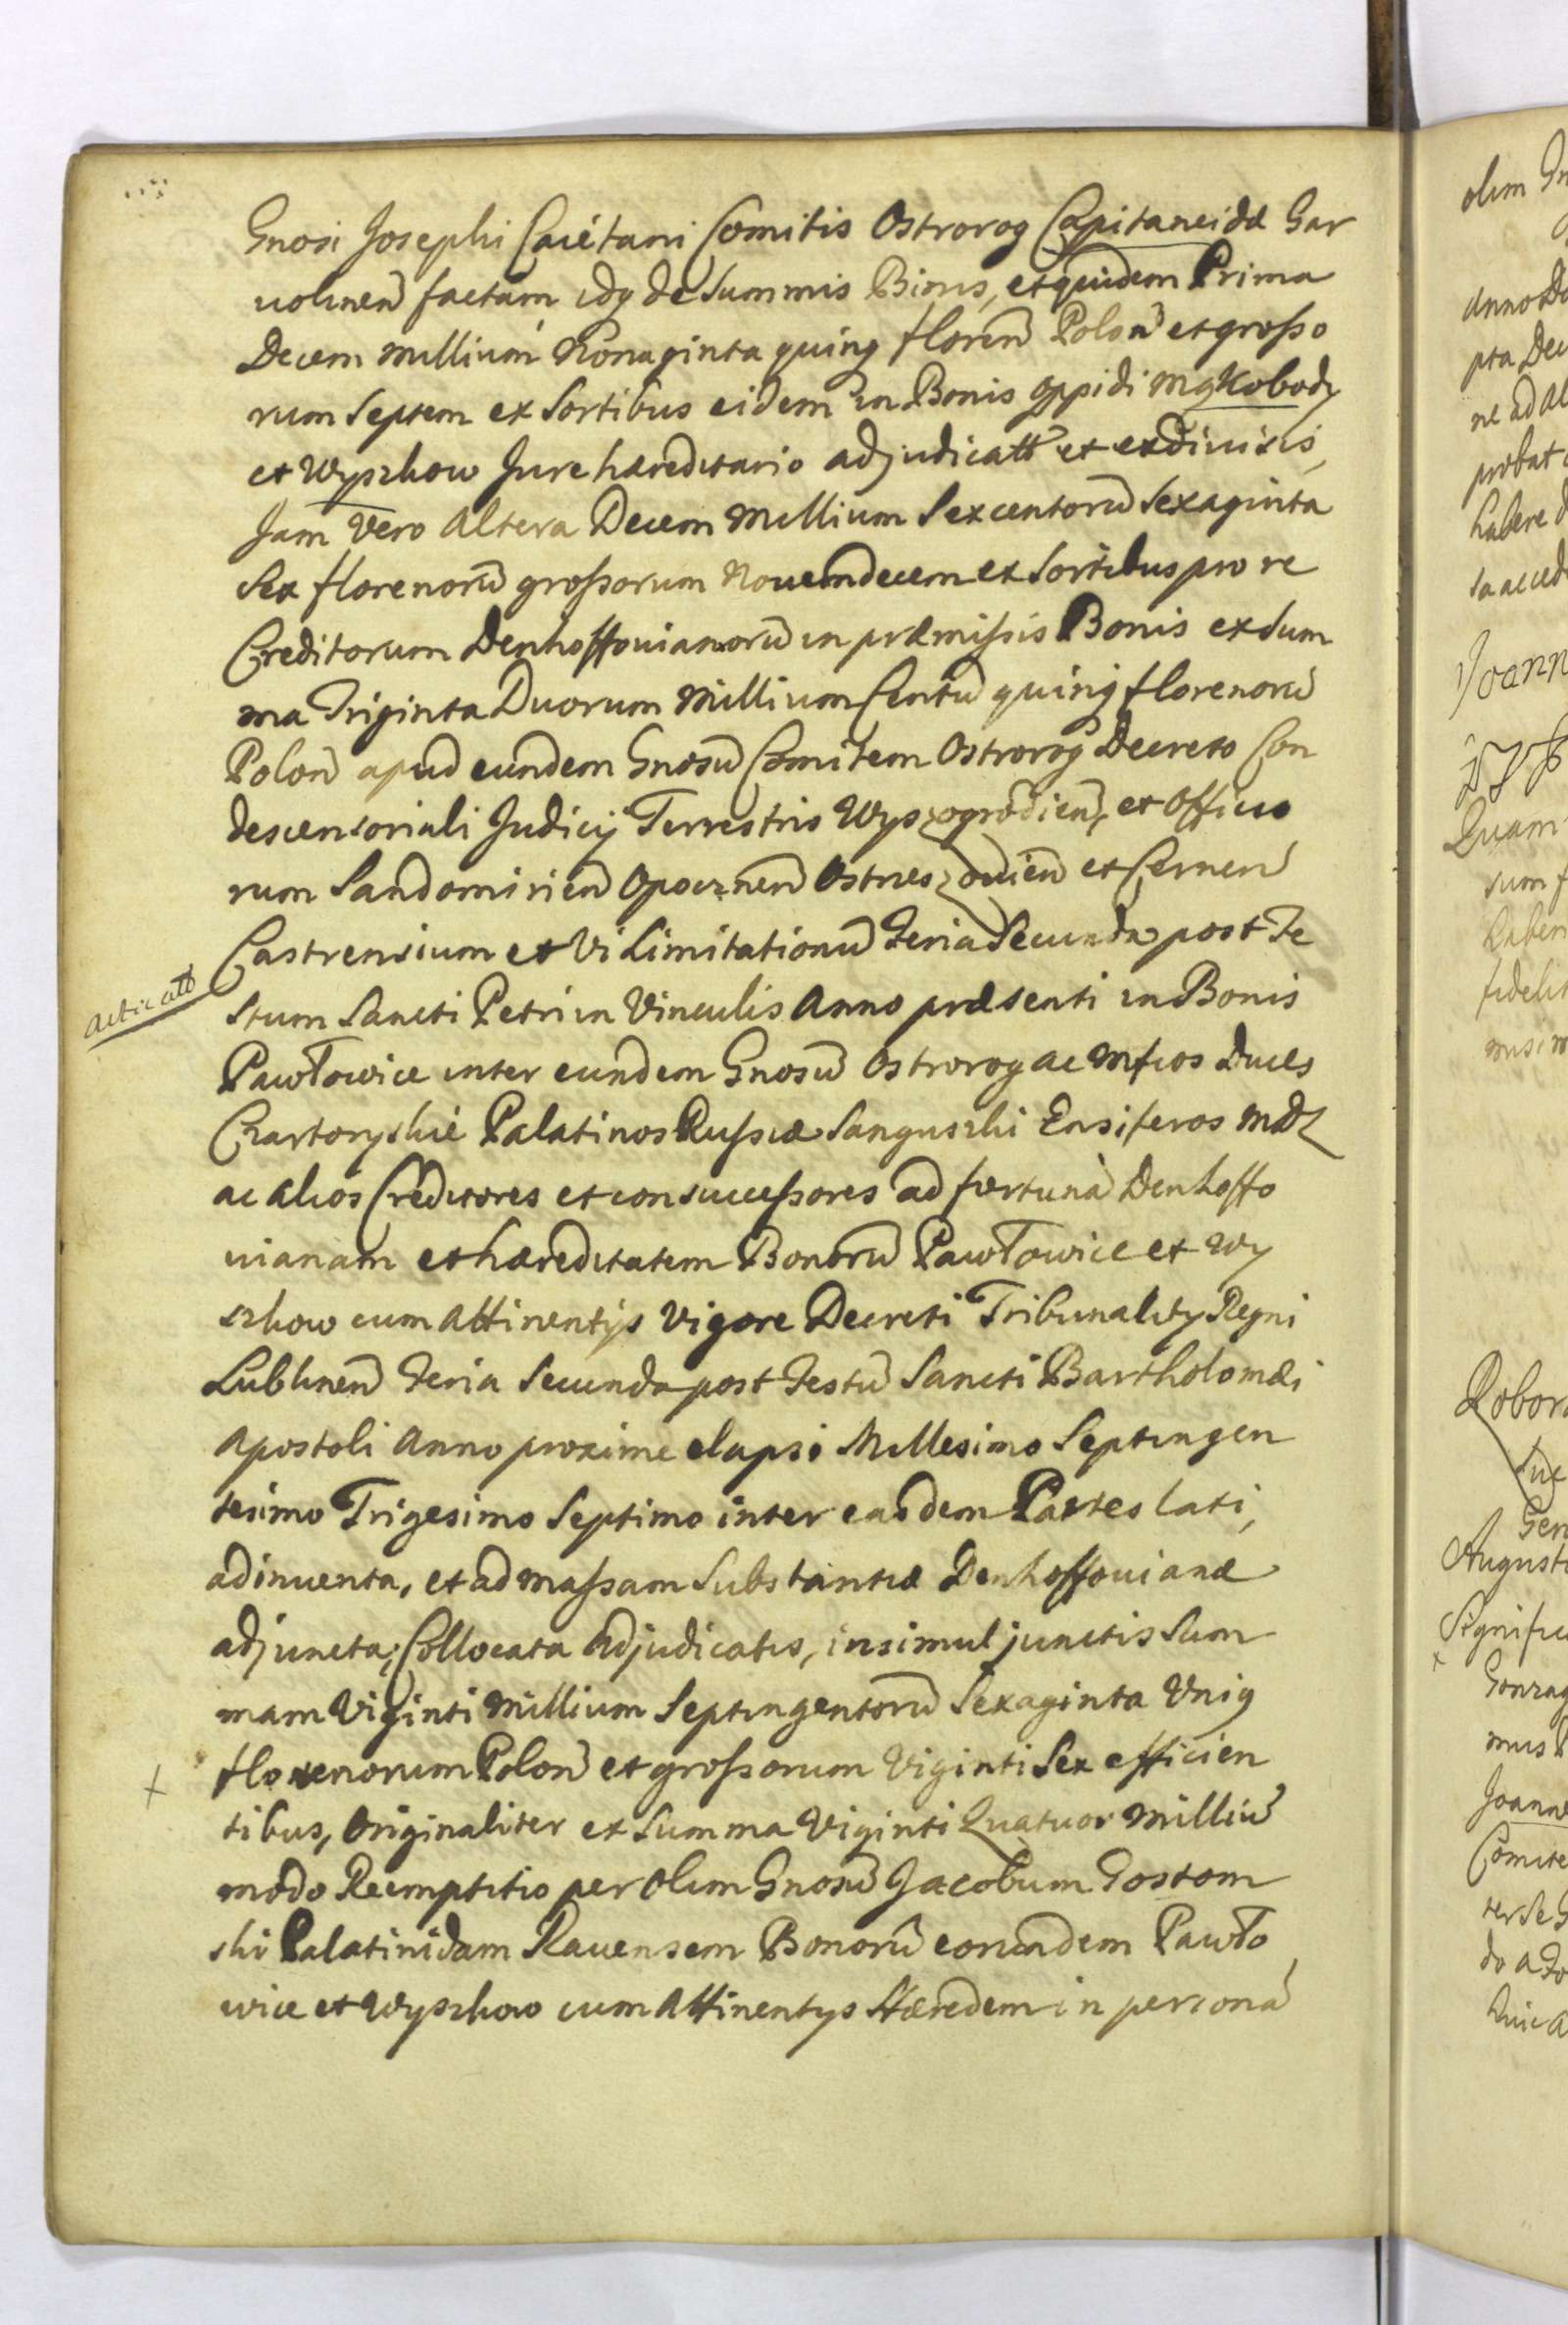 Gnosi Josephi Caietani Comitis Ostrorog Capitaneidæ Gar
uolinen factam idq de Summis Binis, et quidem Prima
Decem Millium Nonaginta quinq floren Polon et grosso
rum Septem ex Sortibus eidem in Bonis oppidi Mąkobody
et Wyszkow Jure hæreditario adjudicatt et exdiuisis,
Jam Vero Altera Decem Millium Sexcentorū Sexaginta
Sex florenorū grossorum Nouemdecem ex Sortibus pro re
Creditorum Denhoffouianorū in præmissis Bonis ex Sum
ma Triginta Duorum Millium Centū quinq florenorū
Polon apud eundem Gnosū Comitem Ostrorog Decreto Con
descensoriali Judicij Terrestris Wyszogrodien, et Officio
rum Sandomirien Opocznen Ostrzeszouien et Cernen
Castrensium et Vi Limitationū Feria Secunda post Fe
stum Sancti Petri in Vinculis Anno præsenti in Bonis
Pawłowice inter eundem Gnosū Ostrorog ac Mfcos Duces
Czartoryskie Palatinos Russiæ Sanguszki Ensiferos MDL
ac alios Creditores et consuccessores ad fortunā Denhoffo
uianam et hæreditatem Bonorū Pawłowice et Wy
szkow cum attinentijs Vigore Decreti Tribunality Regni
Lublinen Feria Secunda post Festū Sancti Bartholomæi
Apostoli Anno proxime elapso Millesimo Septingen
tesimo Trigesimo Septimo inter easdem Partes lati,
adinuenta, et ad massam Substantiæ Denhoffouianæ
adjuncta, Collocata Adjudicatis, insimul junctis Sum
mam Viginti Millium Septingentorū Sexaginta Uniq
florenorum Polon et grossorum Viginti Sex efficien
tibus, Originaliter ex Summa Viginti Quatuor Milliū
modo Reemptitio per Olim Gnosū Jacobum Gostom
ski Palatinidam Rauensem Bonorū eorundem Pawło
wice et Wyszkow cum Attinentijs Hæredem in personā
acticatt